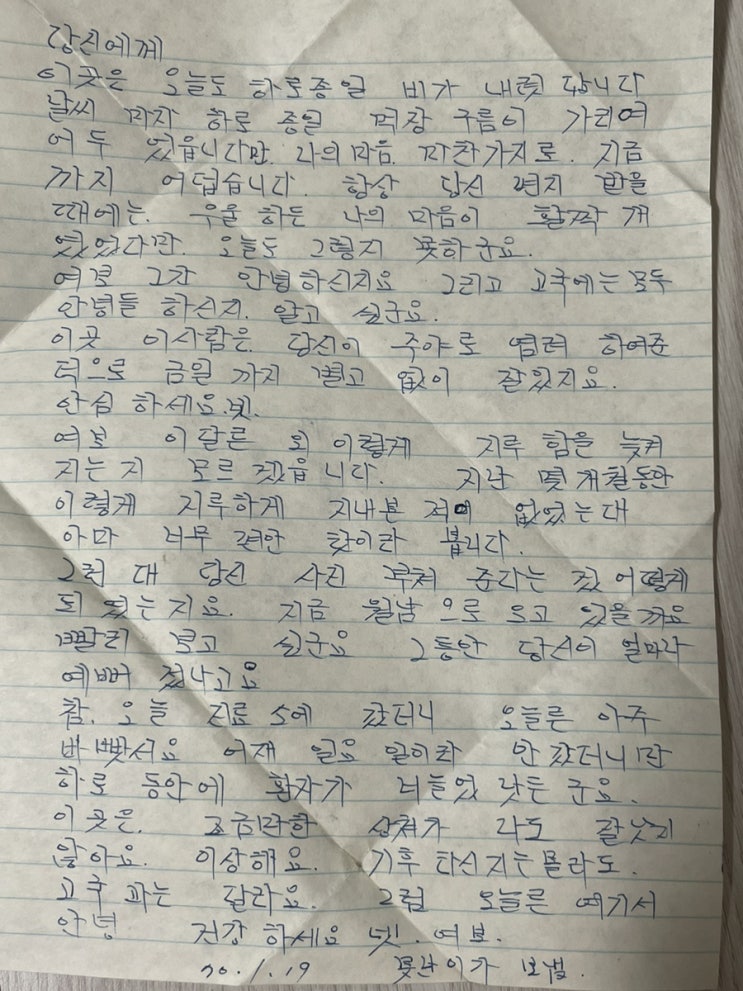 당신에게
이곳은 오늘도 하로종일 비가 내렷 답니다
날씨 마자 하로 종일 먹장 구름이 가리여
어두 웠읍니다만. 나의마음. 마찬가지로. 지금
까지 어덥습니다. 항상 당신 편지 받을
때에는. 우울 하든 나의 마음이 활짝 개
였었다만. 오늘도 그렇지 못하군요.
여보 그간 안녕하신지요 그리고 고국에는 모두
안녕들 하신지. 알고 싶군요.
이곳 이사람은. 당신이 주야로 염려 하여준
덕으로 금일 까지 별고 없이 잘있지요.
안심 하세요. 넷.
여보 이달른 외 이렇게 지루 함을 늦켜
지는지 모르 겠읍니다. 지난 몇개월동안
이렇게 지루하게 지내본 저이 없었는대
아마 너무 편안 찻이라 봅니다.
그런대 당신 사진 부처 준다는 것 어떻게
되였는지요. 지금 월남으로 오고 있을까요
빨리 보고 싶군요 그동안 당신이 얼마나
예뻐 젔나고요
참. 오늘 진료소에 갔더니 오늘른 아주
바빴서요 어재 일요일이라 안갔더니만
하로 동안에 환자가 더늘었 낫든군요.
이곳은. 조금마한 상처가 나도 잘낫지
않아요. 이상해요. 기후 타신지는몰라도.
고국과는 달라요. 그럼 오늘른 여기서
안녕 건강 하세요 넷. 여보.
70. 1. 19 못난이가 보냄.